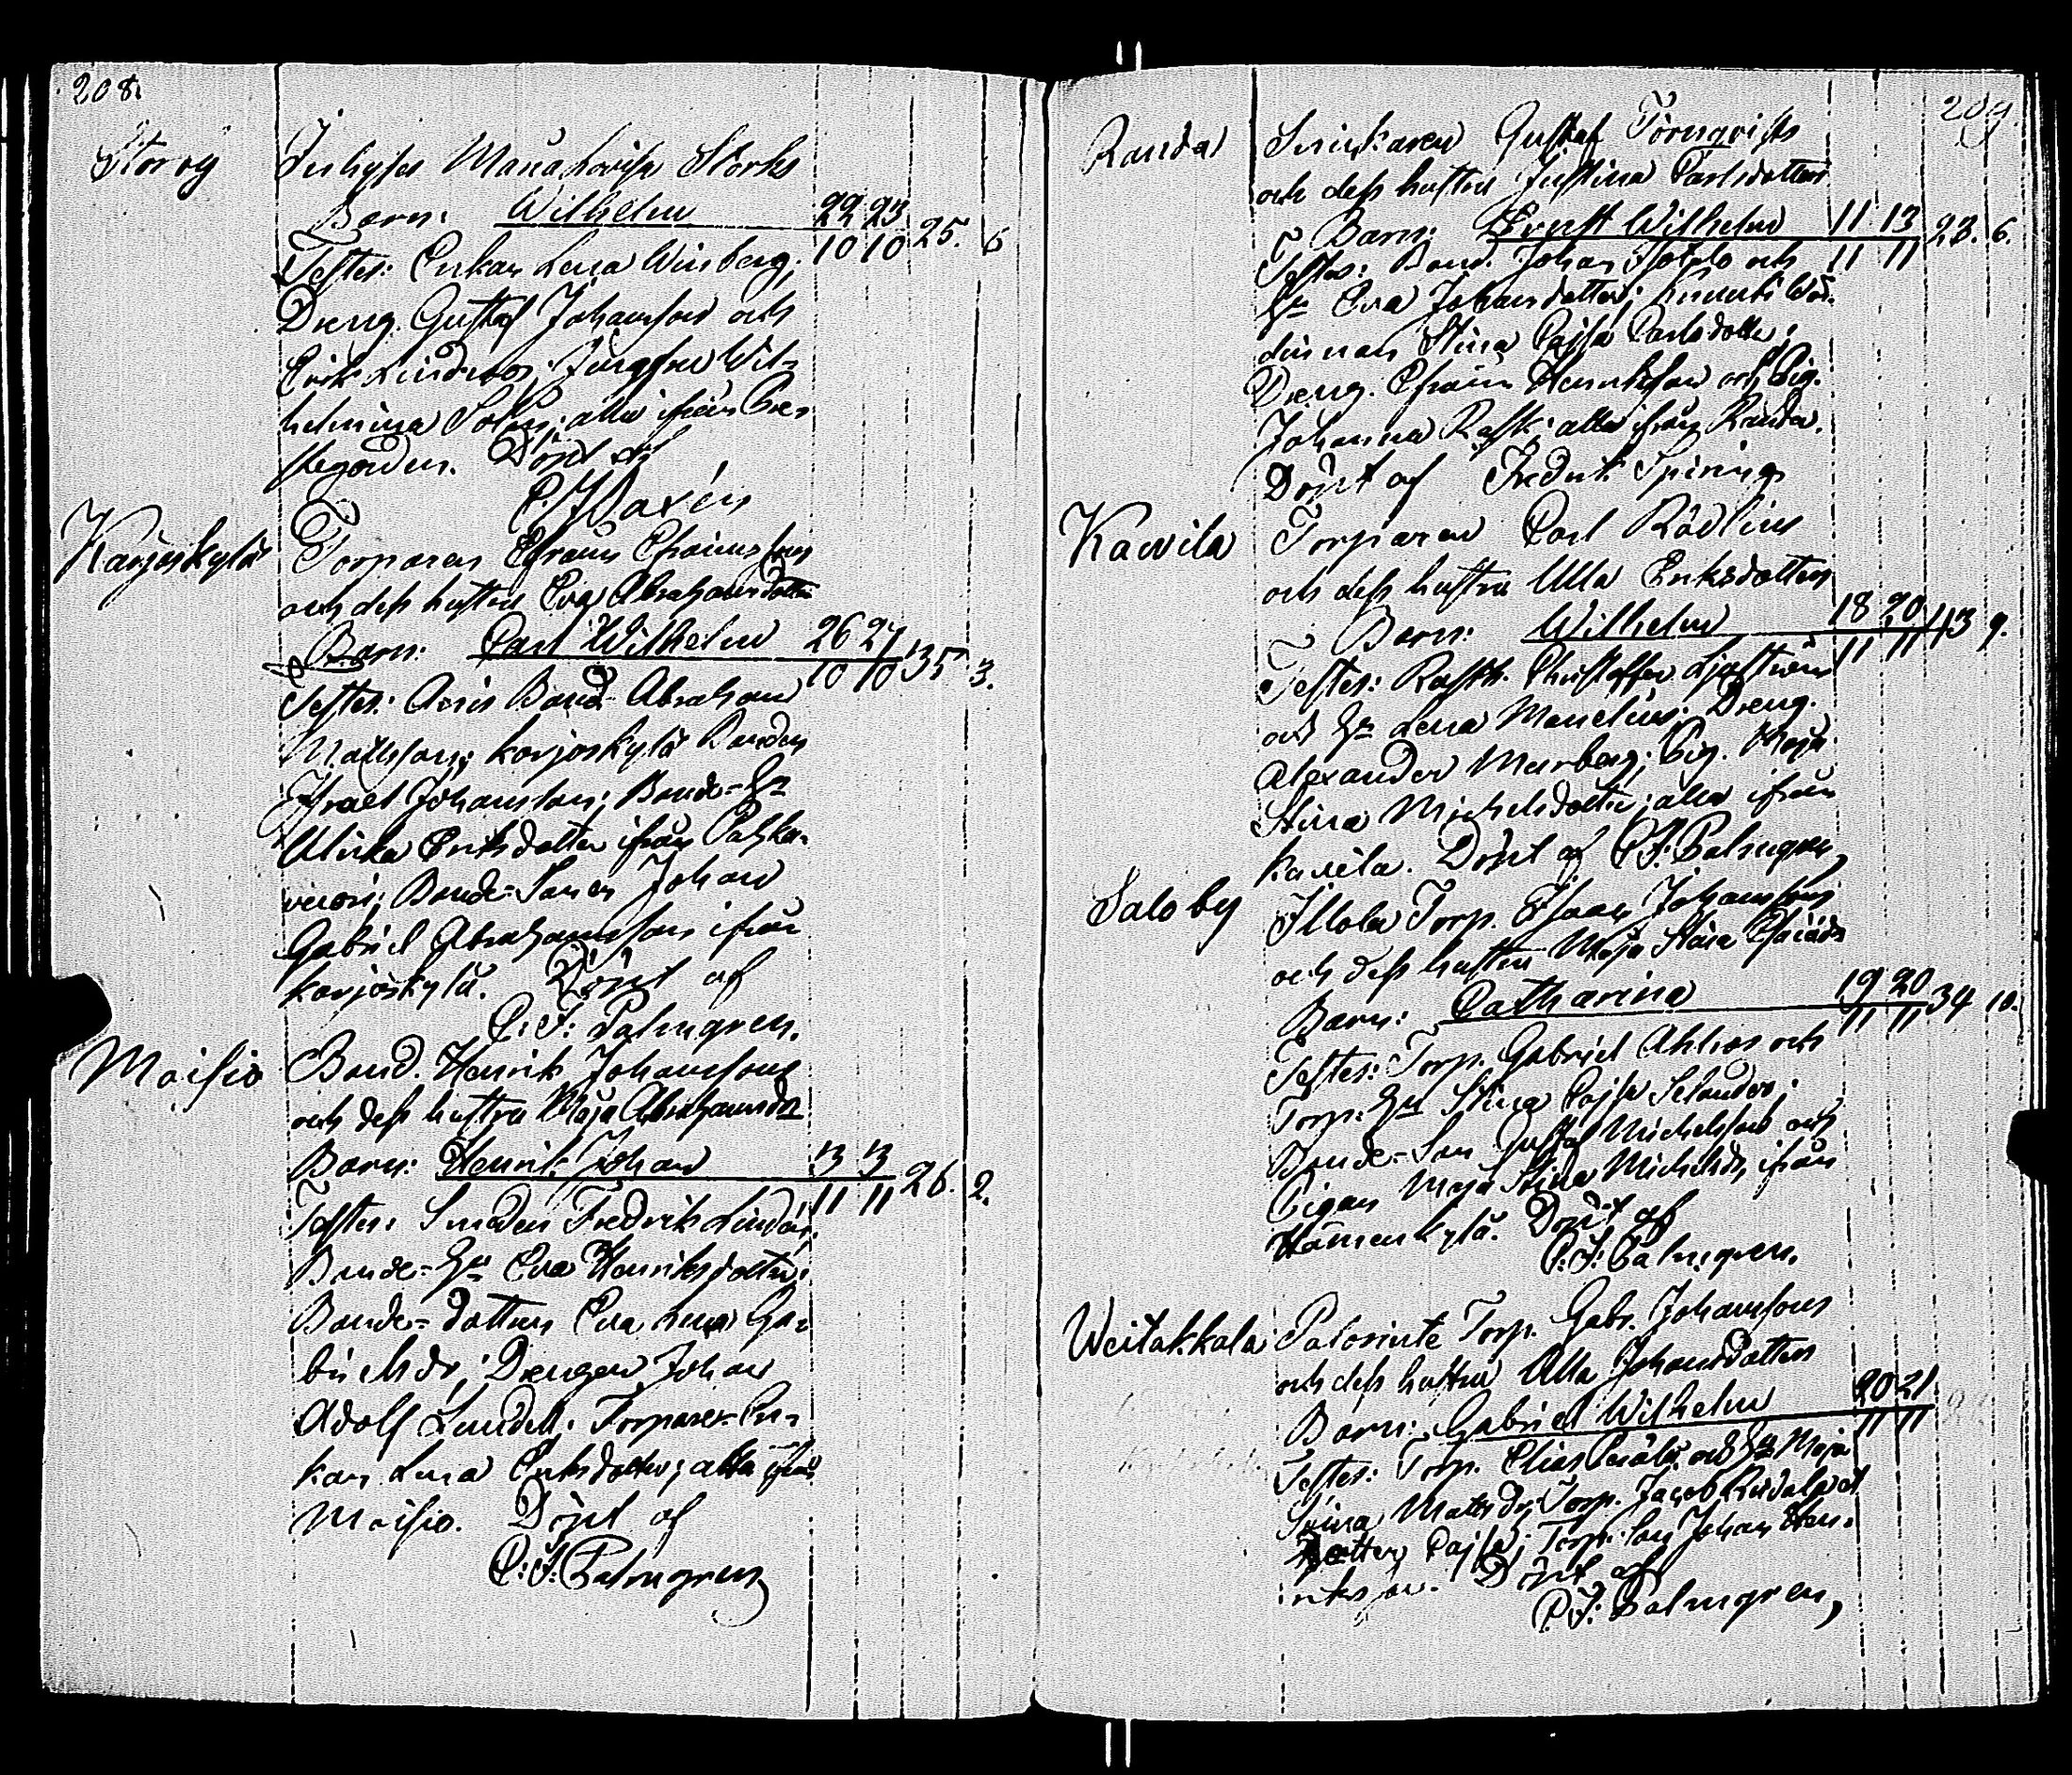 208.
Storby Inhyses Maria Lovisa Storks
Barn: Wilhelm 22 23
10 10 25. 6
Testes: Enkan Lena Winberg;
Dreng. Gustaf Johansson och
Erik Lindroos; Jungfru Wil-
helmina Solin; alla ifrån Pre-
stegården. Döpt af
Karjoskylä Torparen Efraim Efraimssons
och dess hustru Eva Abrahamsdotter
Barn: Carl Wilhelm 26 27
10 10 35 3.
Testes: Bond. Abraham
Mattsson; Karjoskylä Bonden
Israel Johansson; Bonde-Hu
Ulrika Eriksdotter ifrån
Bonde-Sonen Johan
Gabriel Abrahamsson ifrån
Karjoskylä. Döpt af
C: J: Palmgren.
Moisio Bond. Henrik Johanssons
och dess hustru Maja Abrahamsdr
Barn: Henrik Johan 13 13
11 11 26. 2.
Testes: Smeden Fredrik Lindén;
Bonde-Hu Eva Henriksdotter;
Bonde-dottern Eva Lena Ga-
brielsdr; Drengen Johan
Adolf Lundell; Torpare-En-
kan Lena Eriksdotter; alla ifrån
Moisio. Döpt af
C: J: Palmgren
209.
Randa Snickaren Gustaf Törnqvists
och dess hustru Justina Carlsdotters
Barn: Ernst Wilhelm 11 13
11 11 23. 6.
Testes: Bond. Johan och
Hu Eva Johansdotter; Wär-
dinnan Stina Cajsa Carlsdotter;
Dreng. Efraim Henriksson och Pig.
Johanna Rask; alla ifrån Randa.
Döpt af Fredrik Spiring
Kawila Torparen Carl Rådlins
och dess hustru Ulla Eriksdotters
Barn: Wilhelm 18 20
11 11 43 9.
Testes: Rusth. Christoffer
och Hu Lena Manelius; Dreng.
Alexander Murberg; Pig. Maja
Stina Michelsdotter; alla ifrån
Kavila. Döpt af C: J: Palmgren,
Saloby Illola Torp. Isaac Johanssons
och dess hustru Maja Stina
Barn: Catharina 19 20
11 11 34 10.
Testes: Torp. Gabriel Ahlroos och
Torp. Hu Stina Cajsa Selander;
Bonde-Son Gustaf Michelsson och
Pigan Maja Stina Michelsdr ifrån
Hämenkylä. Döpt af
C: J: Palmgren.
Weitakkala Palorinte Torp. Gabr. Johanssons
och dess hustru Ulla Johansdotters
Barn: Gabriel Wilhelm 20 21
11 11
Testes: Torp. Elias och Hu Maja
Stina Mattsdr; Torp. Jacob
dotter Cajsa; Torp. Son Johan Hen-
riksson. Döpt af
C: J: Palmgren,